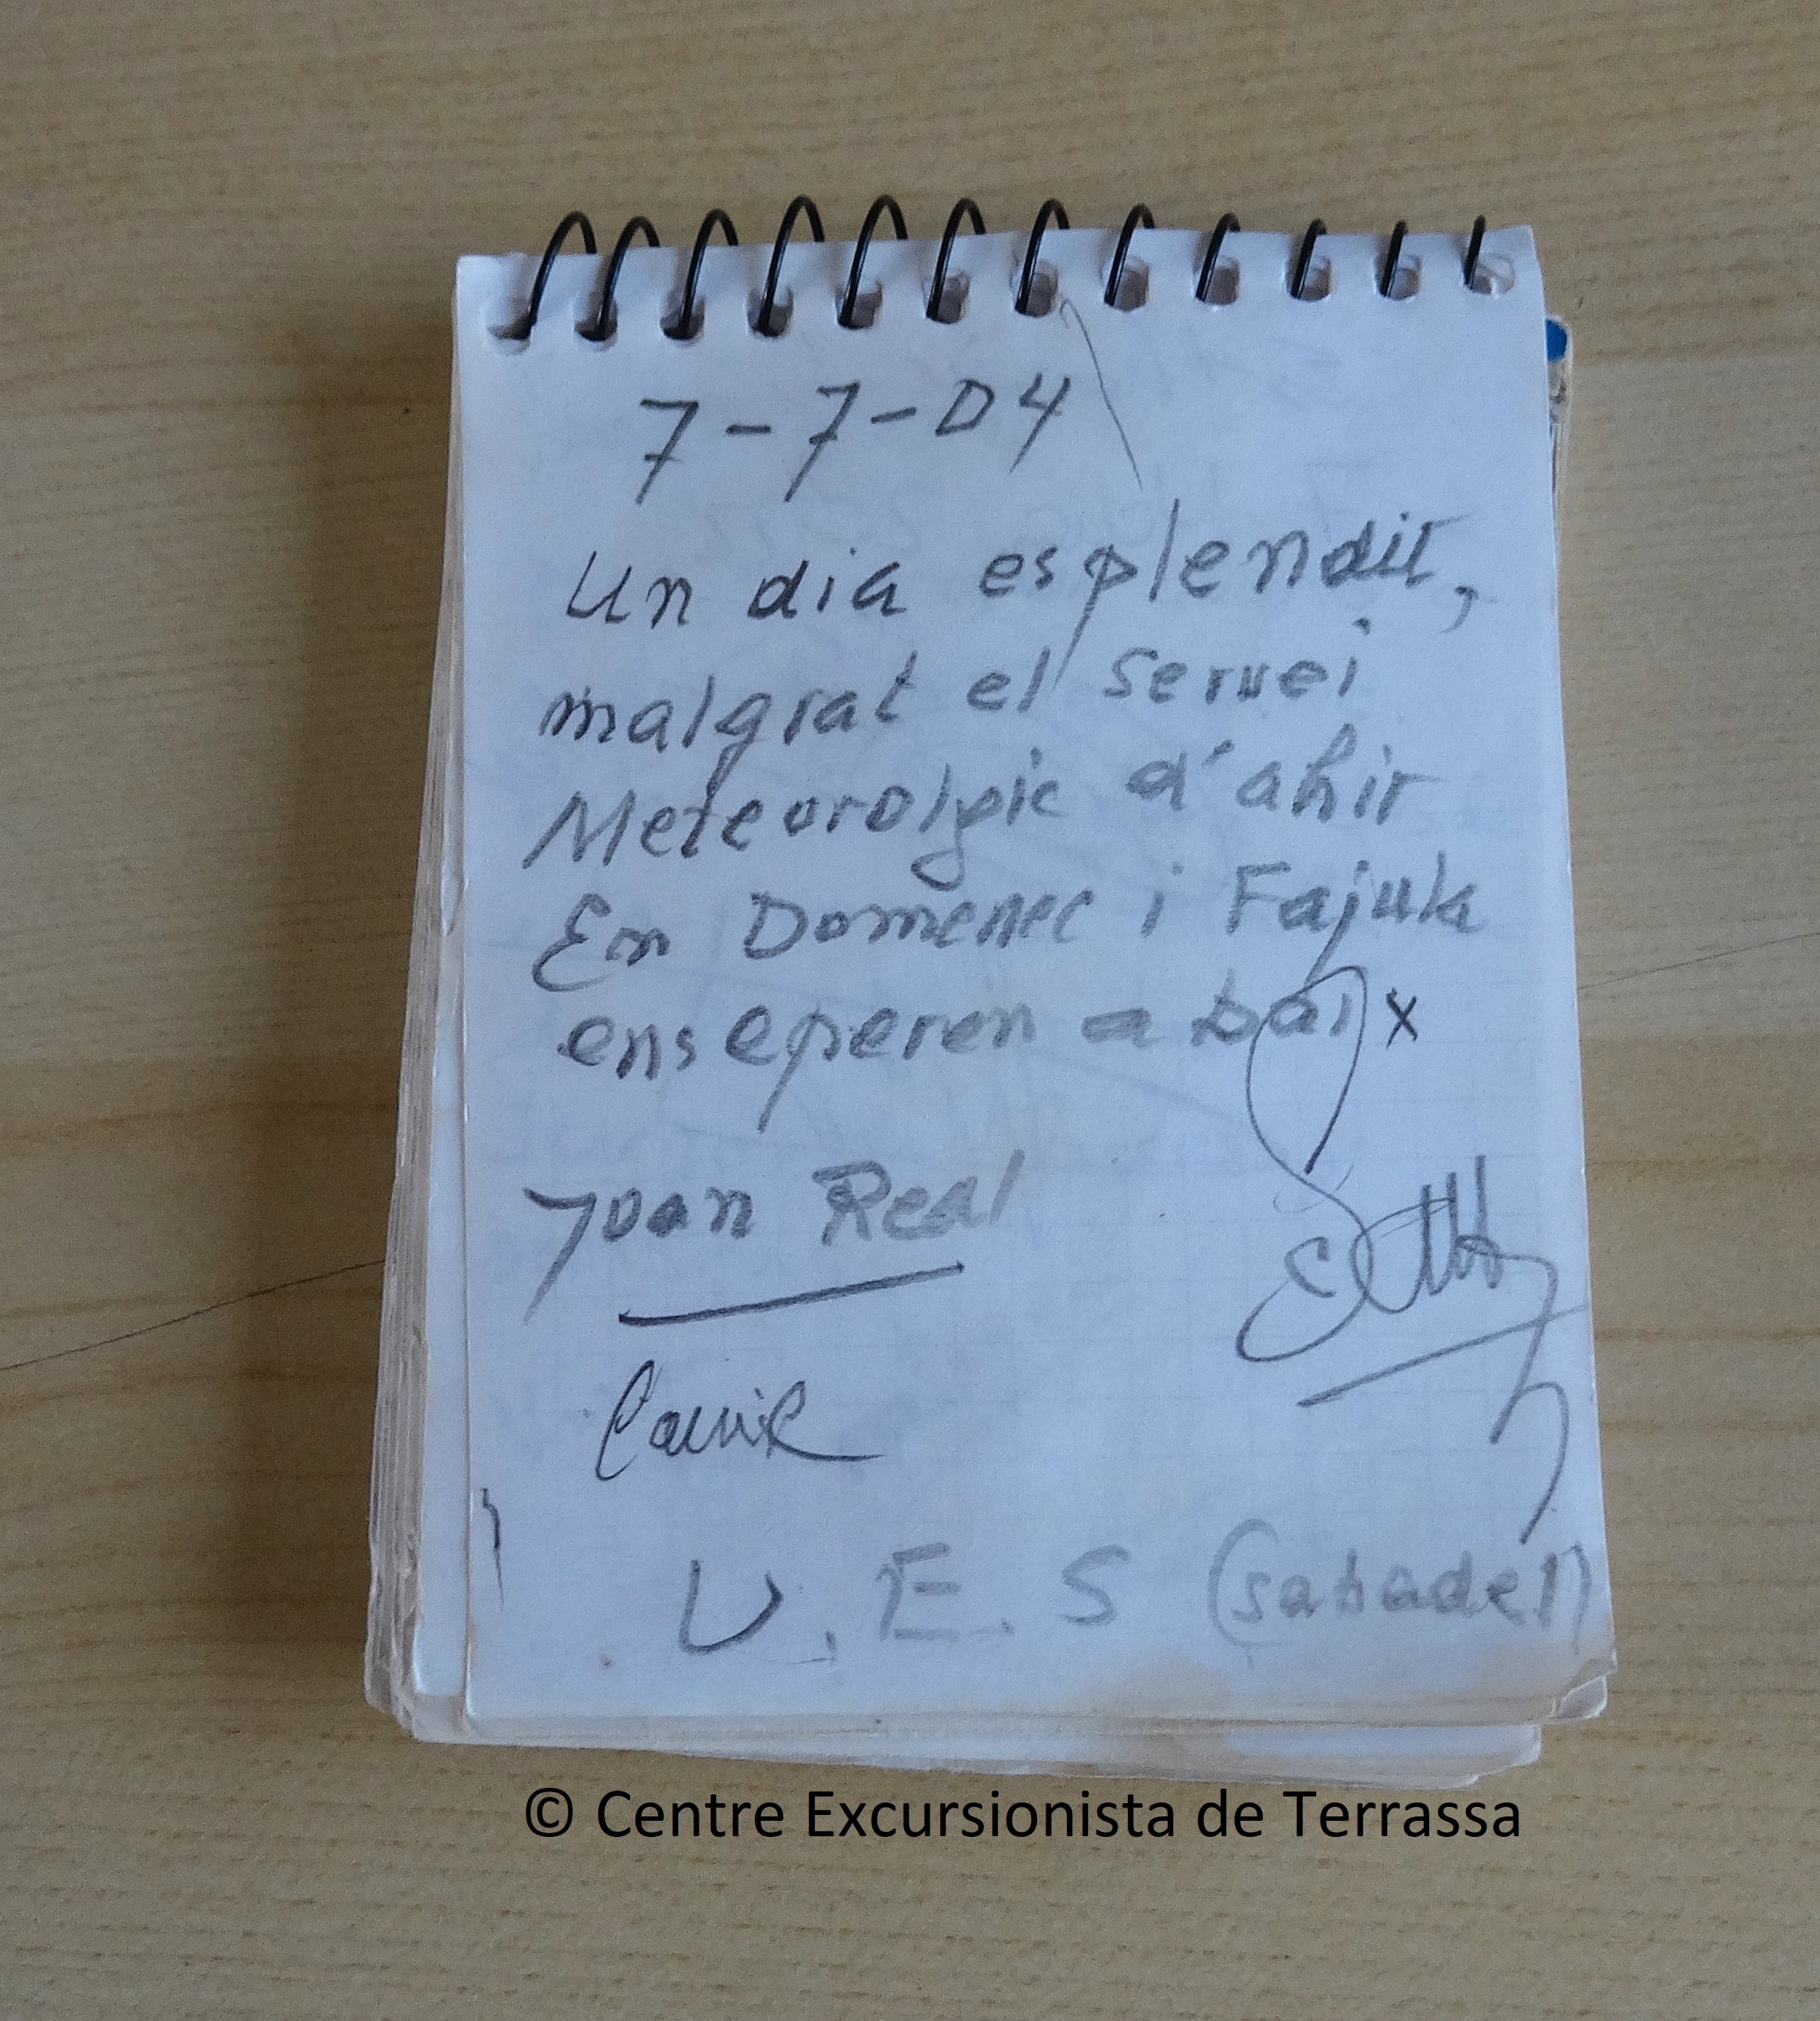 7-7-04
Un dia esplendit,
malgrat el servei
Meteorolgic d'ahir
En Domenec i Fajula
ens eperen a baix
Joan Real
U.E.S (sabadell)
© Centre Excursionista de Terrassa